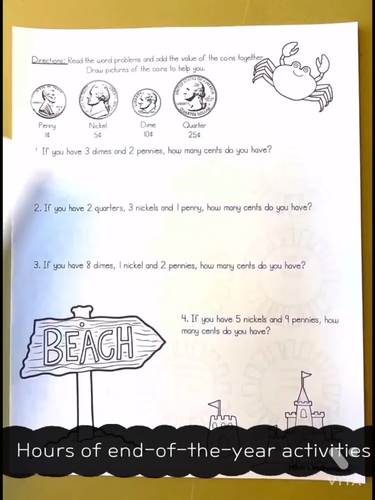 Directions: Read the word problems and add the value of the coins together.
Draw pictures of the coins to help you.
Penny Nickel Dime Quarter
1¢ 5¢ 10¢ 25¢
1. If you have 3 dimes and 2 pennies, how many cents do you have?
2. If you have 2 quarters, 3 nickels and 1 penny, how many cents do you have?
3. If you have 8 dimes, 1 nickel and 2 pennies, how many cents do you have?
4. If you have 5 nickels and 9 pennies, how
many cents do you have?
BEACH
Hours of end-of-the-year activities
VITA